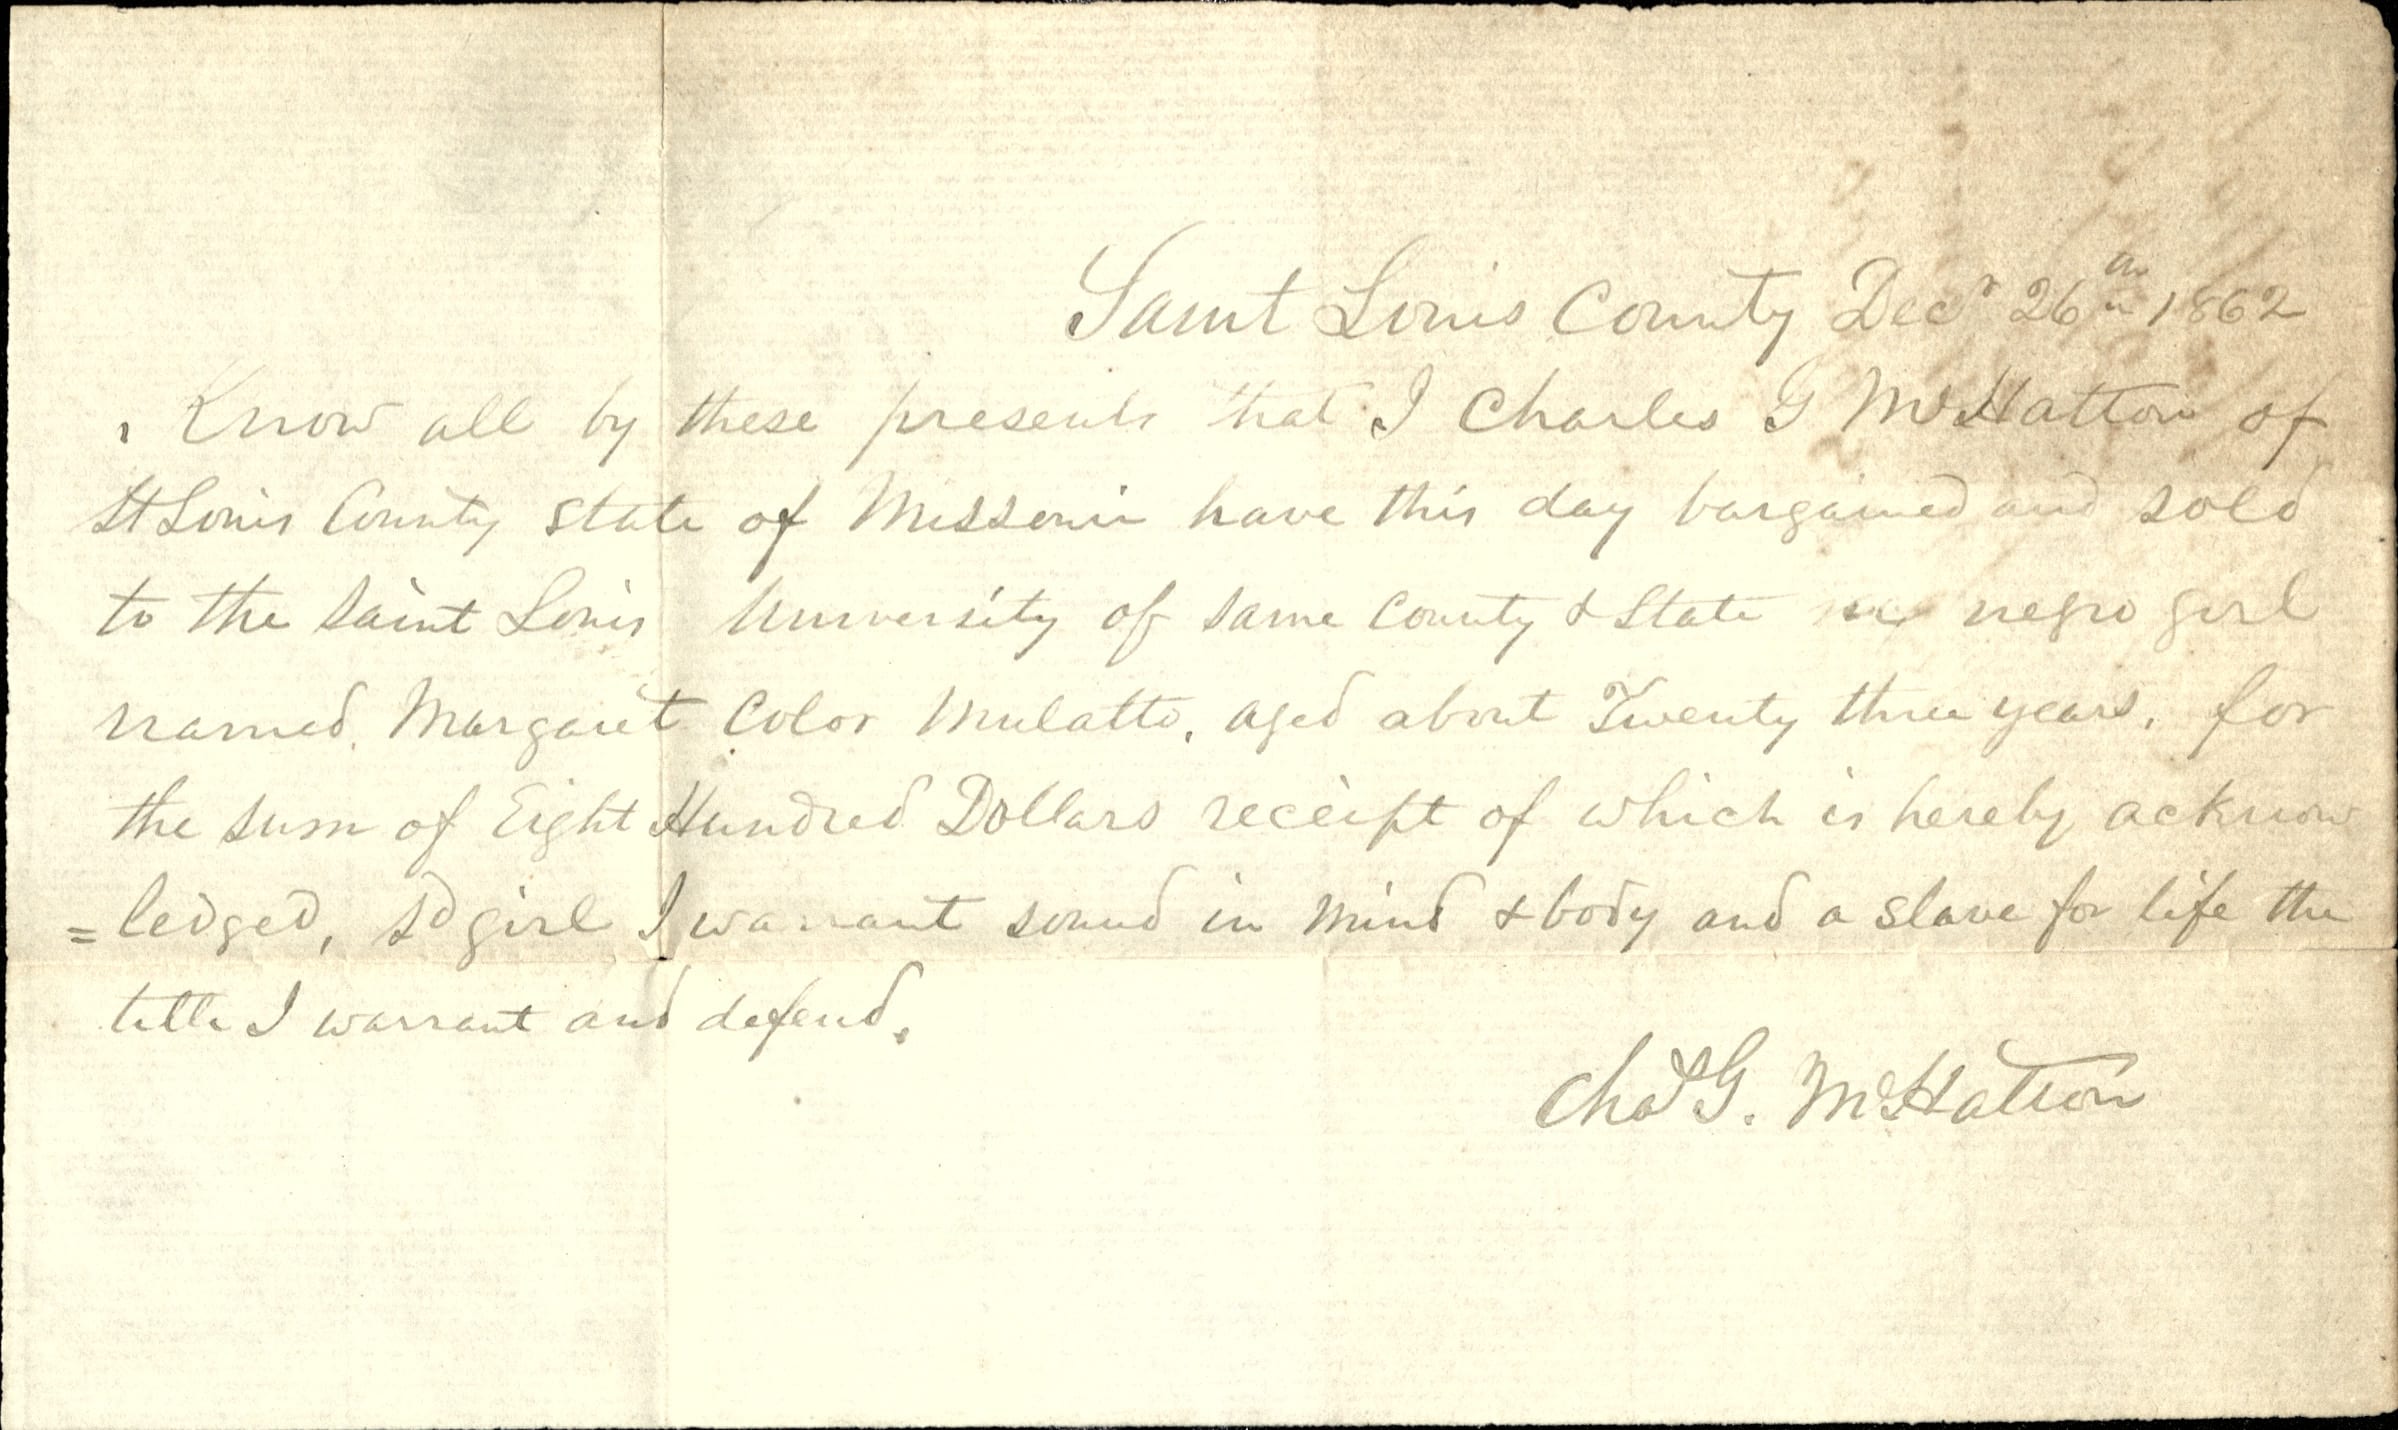 Saint Louis County Decr 26th 1862
Know all by these presents that I Charles G McHatton of
St Louis County State of Missouri have this day bargained and sold
to the Saint Louis University of same County & State a negro girl
named. Margaret Color Mulatto, aged about Twenty three years, for
the sum of Eight Hundred Dollars receipt of which is hereby acknow
=ledged, sd girl I warrant sound in mind & body and a slave for life the
title I warrant and defend.
Chas G. McHatton